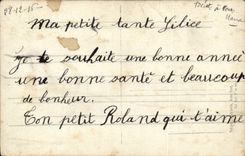 28-12-15
Ma petite tante
Je te souhaite une bonne anneé
une bonne santé et beaucoup
de bonheur.
Ton petit Roland qui t'aime